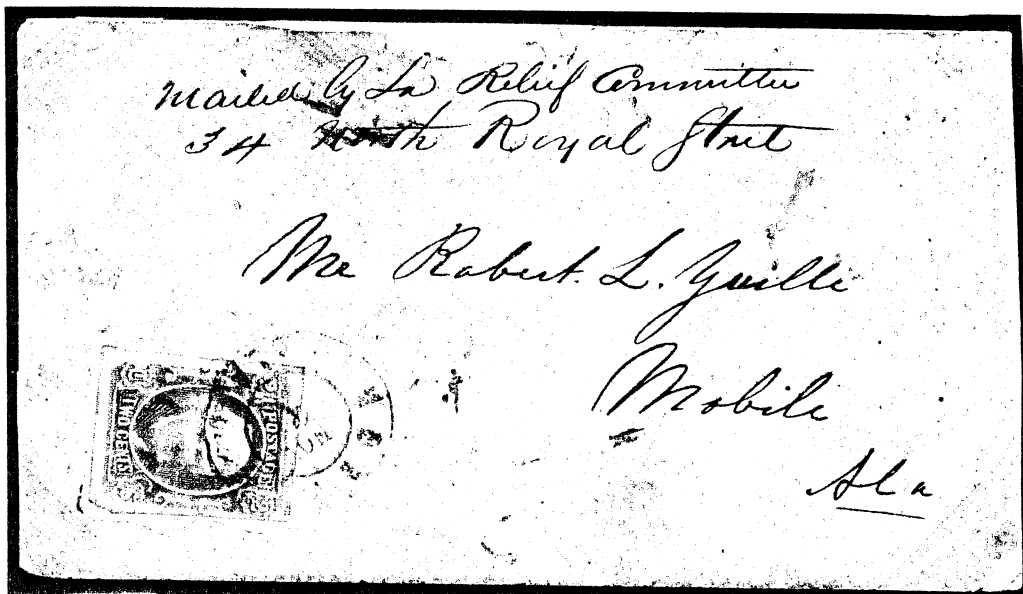 Mailed by La Relief Committee
34 North Royal Street
Mr Robert. L. Yuille
Mobile
Ala
TWO CENTS
POSTAGE